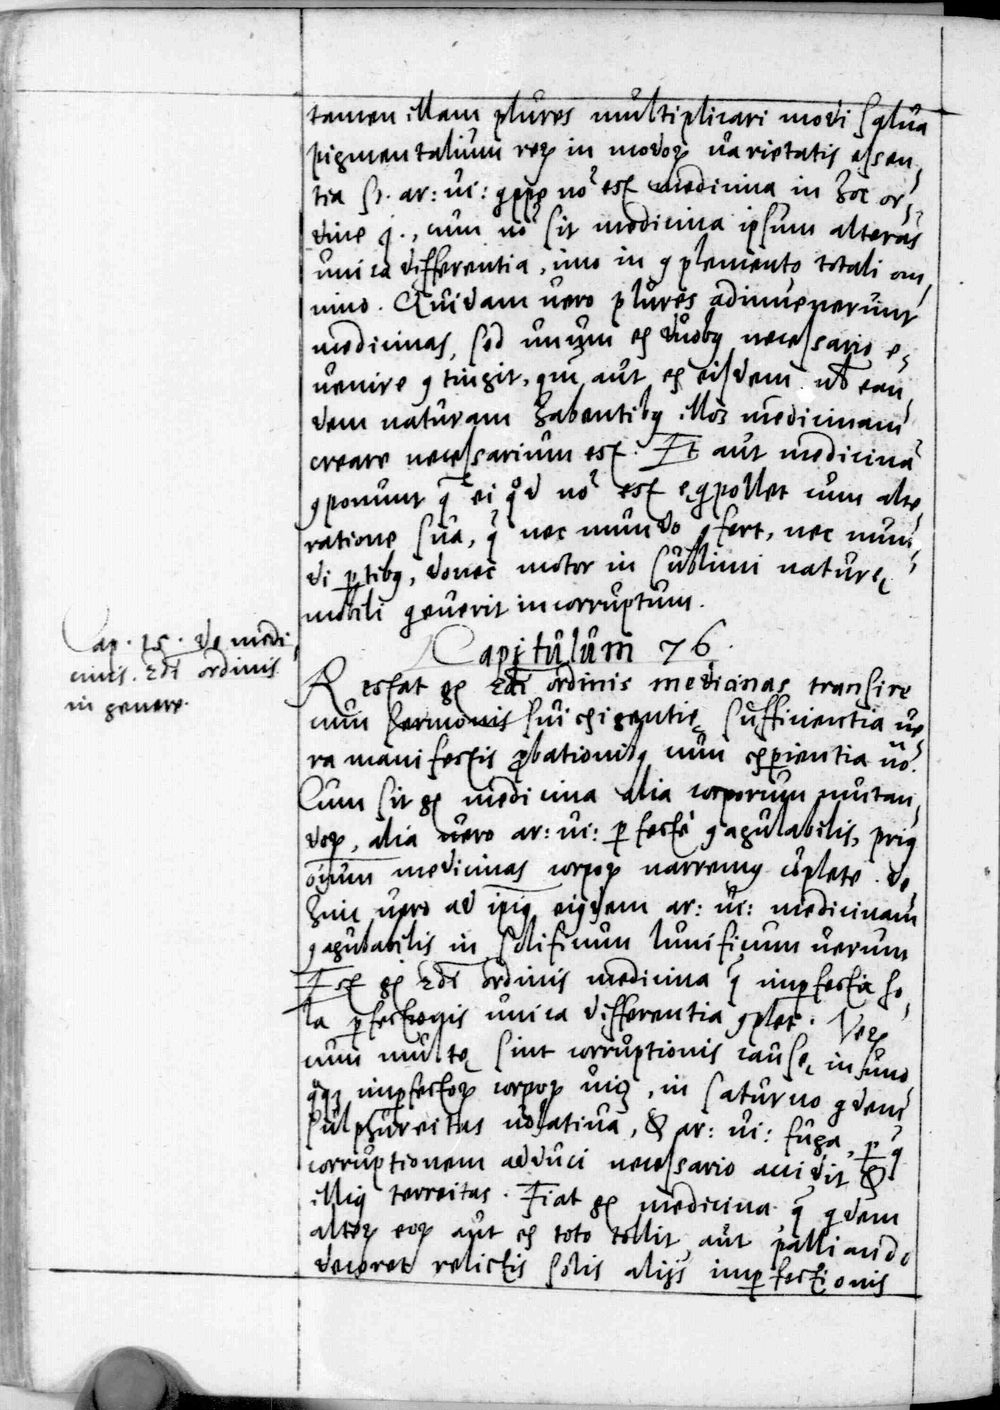 tamen illam plures multiplicari modi salua
pigmentalium reꝝ in modoꝝ uarietatis essen,
tia S. ar: ui: ꝯpꝑ nõ est medicina in hoc or,
dine j., cum nõ sit medicina ipsum alterãs
unica differentia, imo in ꝯplemento totali om
nino. Quidam uero plures adinuenerunt
medicinas, sed unum ex duobꝫ necessario e,
uenire ꝯtingit, qui aut ex eisdem uł ean,
dem naturam habentibꝫ illos medicinam
creare necessarium est. Et aut medicinã
ꝯponunt q̃ ei qd̃ nõ est equipollet cum alte,
ratione sua, q̃ nec mundo ꝯfert, nec mun,
di ꝑtibꝫ, donec motor in sublimi naturę
mobili ꝯuerit incorruptum.
Capitulum 76.
Cap. 25. de medi,
cinis. 2di ordinis
in genere.
Restat gͦ 2di ordinis medicinas transire
cum sermonis sui exigentię sufficientia ue
ra manifestis ꝓbationibꝫ cum exꝑientia uo.
Cum sit gͦ medicina alia corporum mutan,
doꝝ, alia uero ar: ui: ꝑfectè ꝯagulabilis, priꝰ
oĩum medicinas corpoꝝ narremꝰ cõplete. de,
hinc uero ad ipiꝰ eiꝰdem ar: ui: medicinam
ꝯagulabilis in solificum lunificum uerum
Est gͦ 2di ordinis medicina q̃ imꝑfecta so,
la ꝑfectionis unica differentia ꝯplet. Veꝝ
cum multę sint corruptionis causę in uno,
qꝫ imꝑfectoꝝ corpoꝝ uiꝫ, in saturno qdem
sulphureitas uolatiua, & ar: ui: fuga, ꝑ q̃
corruptionem adduci necessario accidit &
illiꝰ terreitas. Fiat gͦ medicina q̃ qdem
alteꝝ eoꝝ aut ex toto tollit aut palliando
decoret relictis solis alijs imꝑfectionis